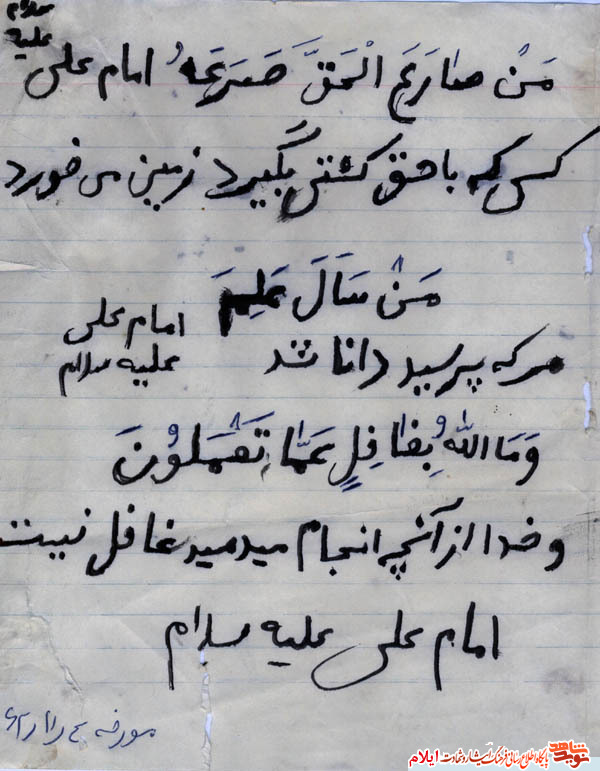 مَنْ صارَعَ الْحَقَّ صَرَعَهُ امام علی علیه سلام
کسی که با حق کشتی بگیرد زمین می خورد
مَنْ سَاَلَ عَلِمَ
امام علی
هر که پرسید دانا شد علیه سلام
وَمَا اللهُ بِغافِلٍ عَمّا تَعْمَلوُنَ
و خدا از آنچه انجام میدمید غافل نیست
امام علی علیه سلام
مورخه
نوید شاهد پایگاه اطلاع رسانی فرهنگ ایثار و شهادت ایلام